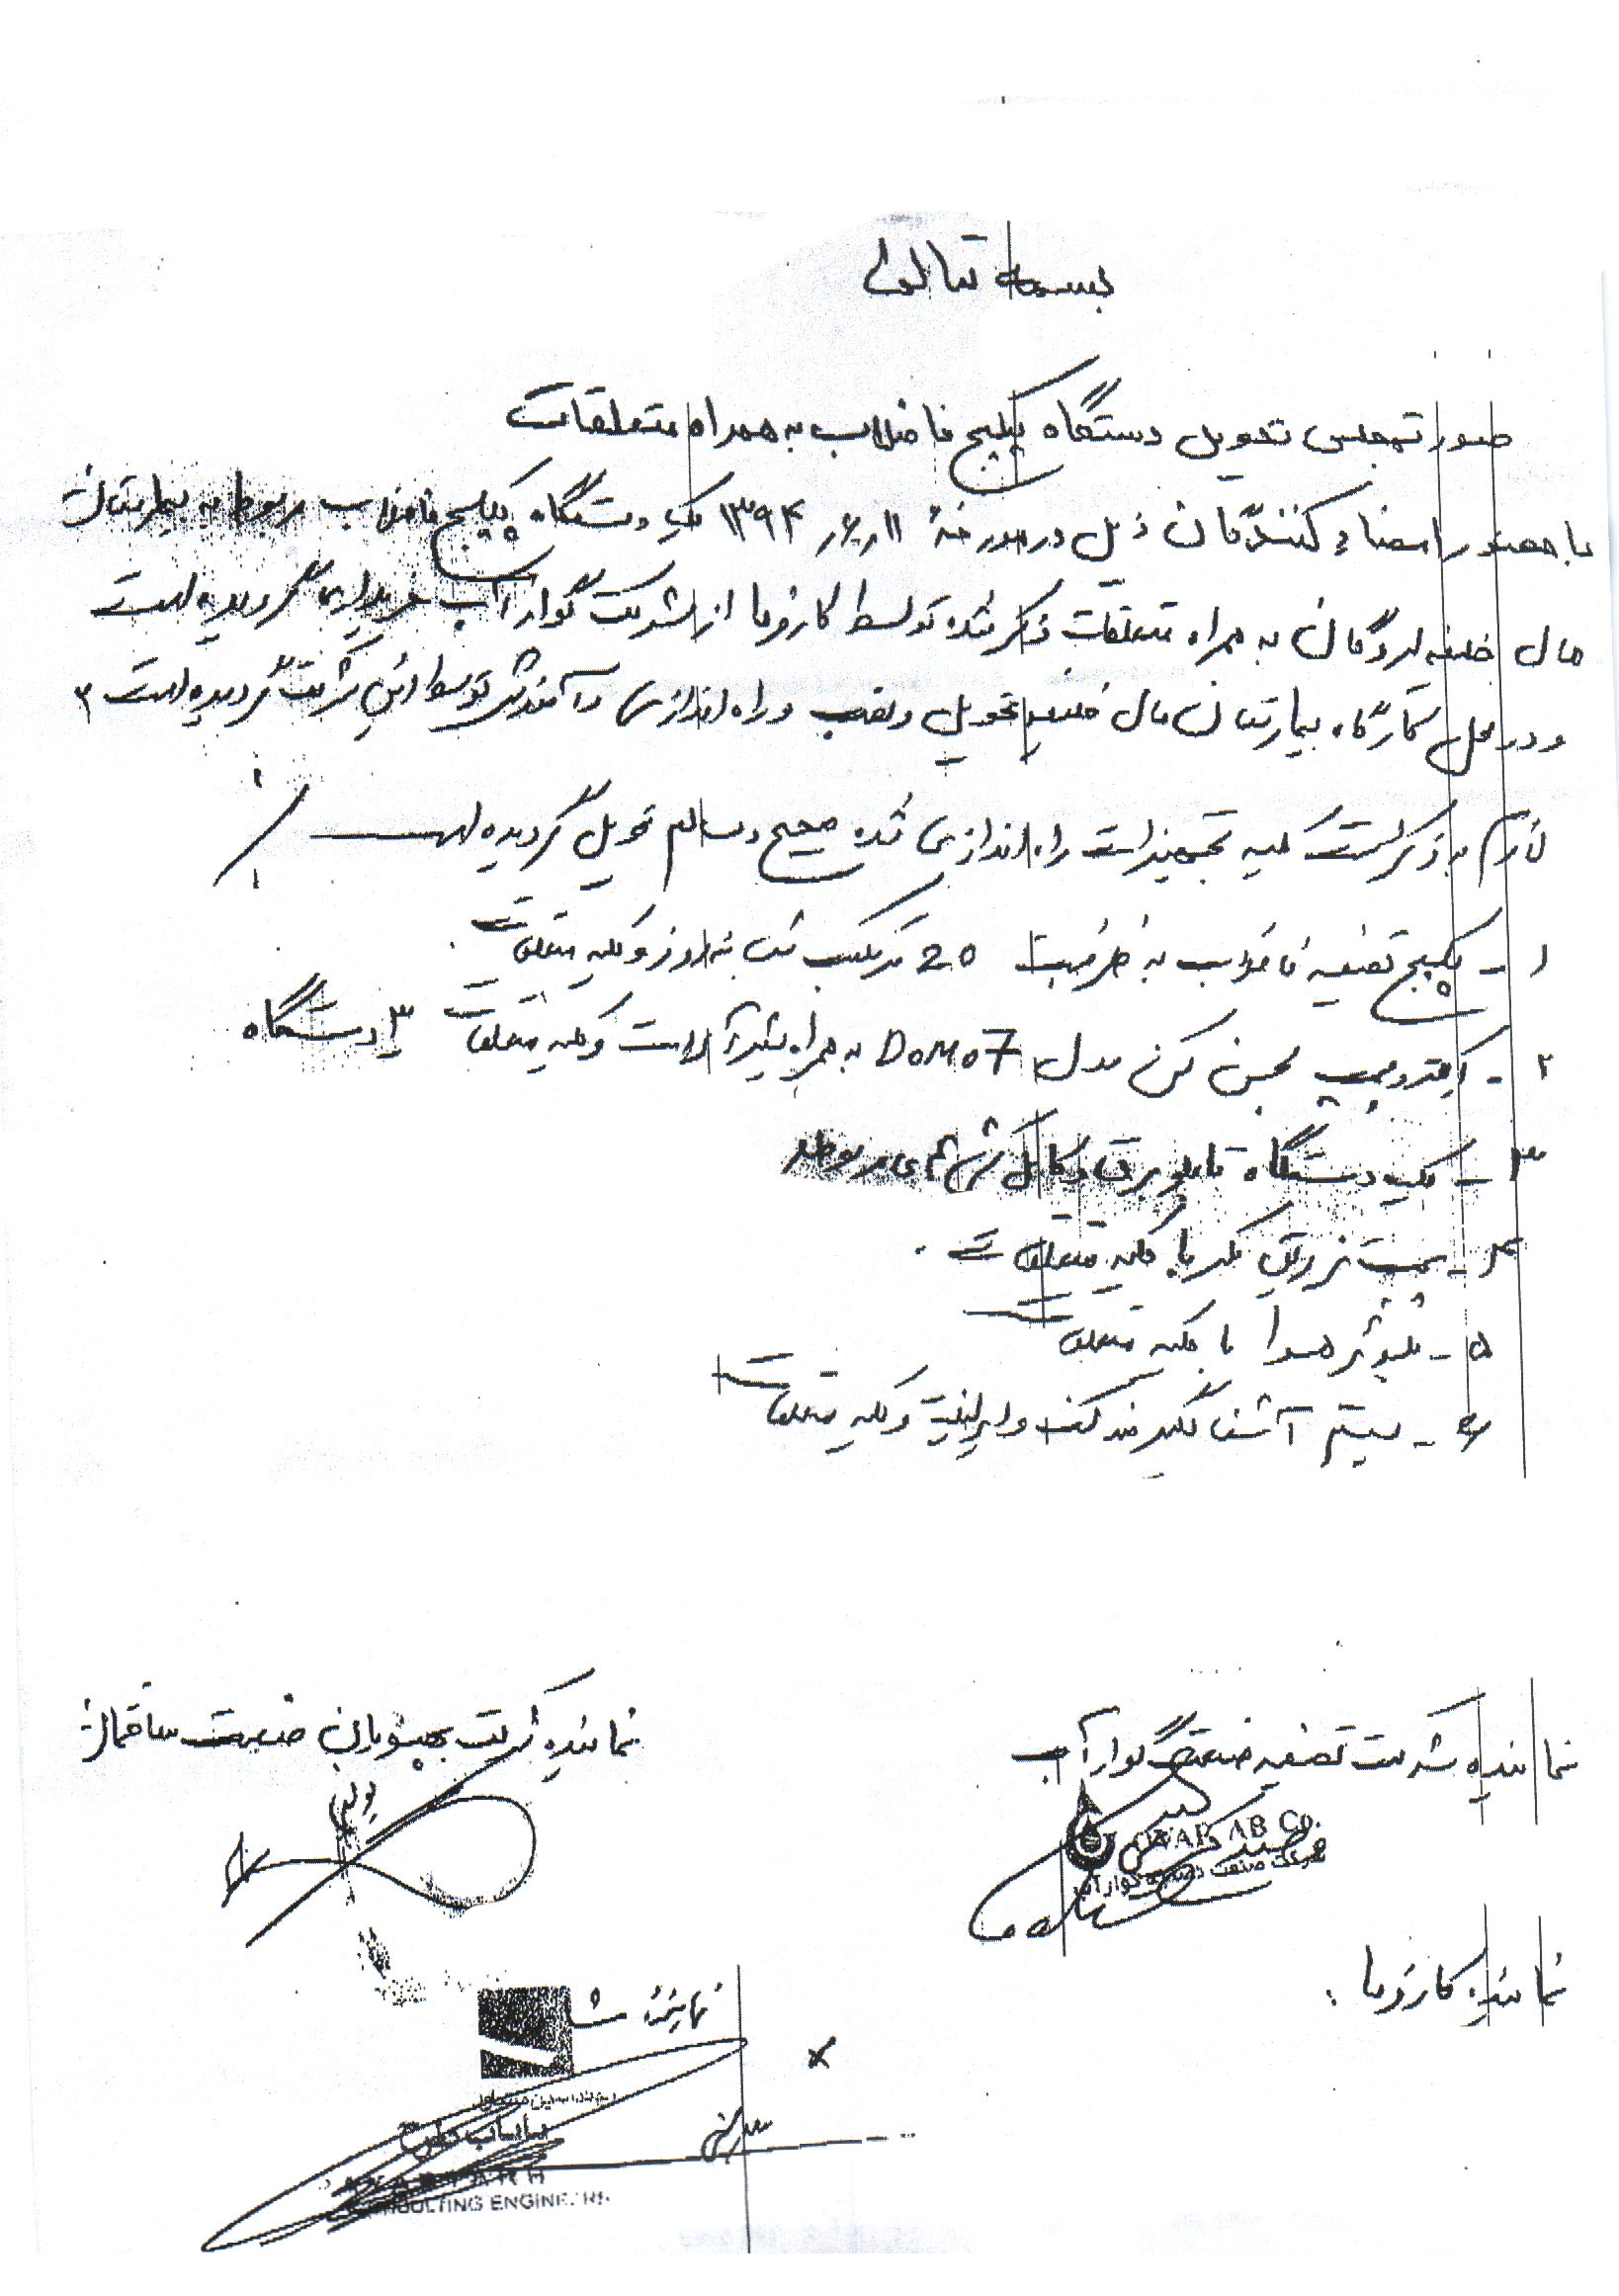 بسمه تعالی
صورتمجلس تحویل دستگاه پکیج فاضلاب به همراه متعلقات
با حضور امضاء کنندگان ذیل در مورخهٔ ۱۱ر۶ر۱۳۹۴ یک دستگاه پکیج فاضلاب مربوط به بیمارستان
مال خلیفه لردگان به همراه متعلقات ذکر شده توسط کارفرما از شرکت گوارا آب خریداری گردیده است
و در محل کارگاه بیمارستان مال خلیفه تحویل و نصب و راه اندازی و آموزش توسط این شرکت گردیده است
لازم بذکر است کلیه تجهیزات راه اندازی شده صحیح و سالم تحویل گردیده است
۱ - پکیج تصفیه فاضلاب به ظرفیت 20 متر مکعب شبانه روز و کلیه متعلقات
۲ - الکتروپمپ لجن کش مدل DOMO7 به همراه شیرآلات و کلیه متعلقات ۳ دستگاه
۳ - یک دستگاه تابلو برق و کابل کشی های مربوطه
۴ - پمپ تزریق کلر با کلیه متعلقات .
۵ - دیفیوزر هوا با کلیه متعلقات
۶ - سیستم آشغالگیر ضد کف و ایرلیفت و کلیه متعلقات
نماینده شرکت تصفیه صنعت گوارا آب
نماینده شرکت بهینه یاران صنعت ساختمان
GOVAR AB Co.
شرکت صنعت تصفیه گوارا آب
نماینده کارفرما :
نماینده
مهندسین مشاور
طرح
CONSULTING ENGINEERS